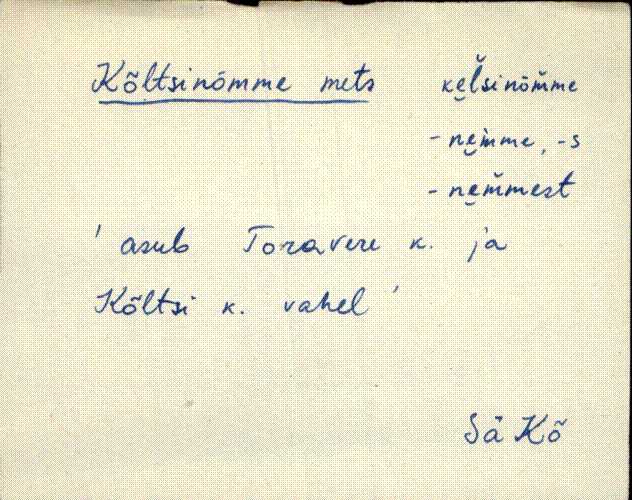 Kõltsinõmme mets ke̮l̆sinõm̆me
- ne̮m̀me, -s
- ne̮m̆mest
' asub Toravere k. ja
Kõltsi k. vahel '
Sä Kõ